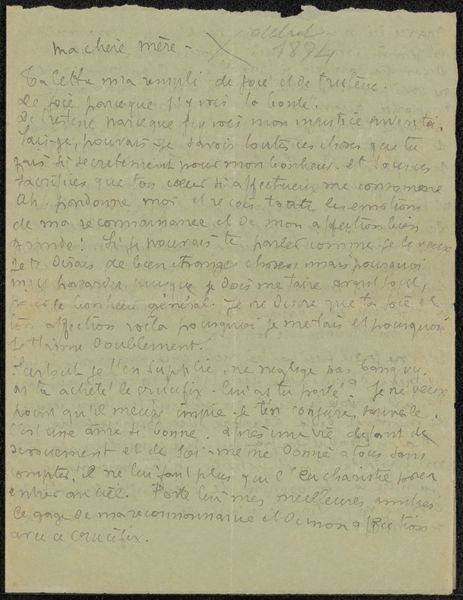 début
1894
ma chère mère -
Ta lettre m'a rempli de joie et de tristesse.
De joie parceque j'y vois ta bonté.
De tristesse parceque j'y vois mon injustice envers toi.
Sais-je, pouvais-je savoir toutes ces choses que tu
fais si secretement pour mon bonheur. et tous ces
sacrifices que ton coeur si affectueux me
Ah! pardonne moi et reçois toute les emotions
de ma reconnaissance et de mon affection bien
grande! Si je pouvais te parler comme je le veux
je te dirais de bien etranges choses mais pourquoi
puisque je dois me taire avant tout,
le bonheur général. Je ne désire que ta joie et
ton affection voilà pourquoi je me tais et pourquoi
je t'aime doublement.
Surtout je t'en supplie, ne neglige pas Tanguy.
as tu acheté le crucifix - lui as tu porté? Je ne veux
point qu'il meure impie. je t'en conjure,
c'est une âme si bonne. après une vie de
devouement et de foi - même donné a tous sans
compter, il ne lui faut plus que l'Eucharistie pour
entrer au ciel. Porte lui mes meilleures amitiés
ce gage de ma reconnaissance et de mon affection
avec ce crucifix.